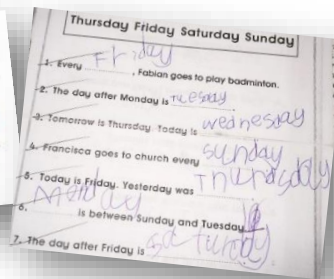 Thursday Friday Saturday Sunday
1. Every Friday, Fabian goes to play badminton.
2. The day after Monday is Tuesday
3. Tomorrow is Thursday. Today is wednesday
4. Francisca goes to church every sunday
5. Today is Friday. Yesterday was Thursday
6. Monday is between Sunday and Tuesday
7. The day after Friday is saturday.